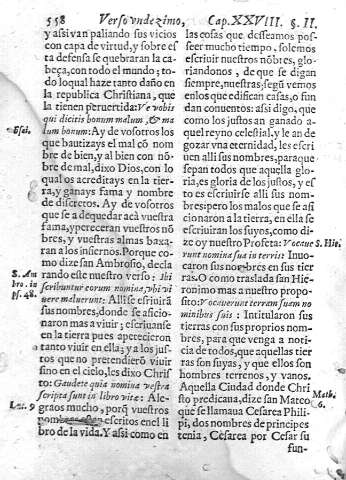 558 Verso vndezimo, Cap. XXVIII. §. II.
y assi van paliando sus vicios
con capa de virtud, y sobre es
ta defensa se quebraran la ca-
beça, con todo el mundo; to-
do lo qual haze tanto daño en
la republica Christiana, que
la tienen peruertida: Ve vobis
qui dicitis bonum malum, & ma
lum bonum: Ay de vosotros los
que bautizays el mal cõ nom
bre de bien, y al bien con nõ-
bre de mal, dixo Dios, con lo
qual os acreditays en la tier-
ra, y ganays fama y nombre
de discretos. Ay de vosotros
que se a de quedar acà vuestra
fama, y pereceran vuestros nõ
bres, y vuestras almas baxa-
ran a los infiernos. Porque co-
mo dize san Ambrosio, decla
rando este nuestro verso: Ibi
scribuntur eorum nomina, vbi vi
uere maluerunt: Alli se escriuirã
sus nombres, donde se aficio-
naron mas a viuir; escriuanse
en la tierra pues apetecieron
tanto viuir en ella; y a los jus-
tos que no pretendierõ viuir
sino en el cielo, les dixo Chris
to: Gaudete quia nomina vestra
scripta sunt in libro vitæ: Ale-
graos mucho, porq̃ vuestros
nombres estan escritos en el li
bro de la vida. Y assi como en
Esai.
S. Am
bro. in
ps. 48.
Luc. 9
las cosas que desseamos pos-
seer mucho tiempo, solemos
escriuir nuestros nõbres, glo-
riandonos, de que se digan
siempre, nuestras; segũ vemos
en los que edifican casas, o fun
dan conuentos: assi digo, que
como los justos an ganado a
quel reyno celestial, y le an de
gozar vna eternidad, les escri
uen alli sus nombres, para que
sepan todos que aquella glo-
ria, es gloria de los justos, y es
to es escriuirse alli sus nom-
bres: pero los malos que se afi
cionaron a la tierra, en ella se
escriuiran los suyos, como di-
ze oy nuestro Profeta: Vocaue
runt nomina sua in terris: Inuo-
caron sus nombres en sus tier
ras. O como traslada san Hie-
ronimo mas a nuestro propo-
sito: Vocauerunt terram suam no
minibus suis: Intitularon sus
tierras con sus proprios nom-
bres, para que venga a noti-
cia de todos, que aquellas tier
ras son suyas, y que ellos son
hombres terrenos, y vanos.
Aquella Ciudad donde Chri
sto predicaua, dize san Mateo
que se llamaua Cesarea Phili-
pi, dos nombres de principes
tenia, Cesarea por Cesar su
fun-
S. Hie.
Math.